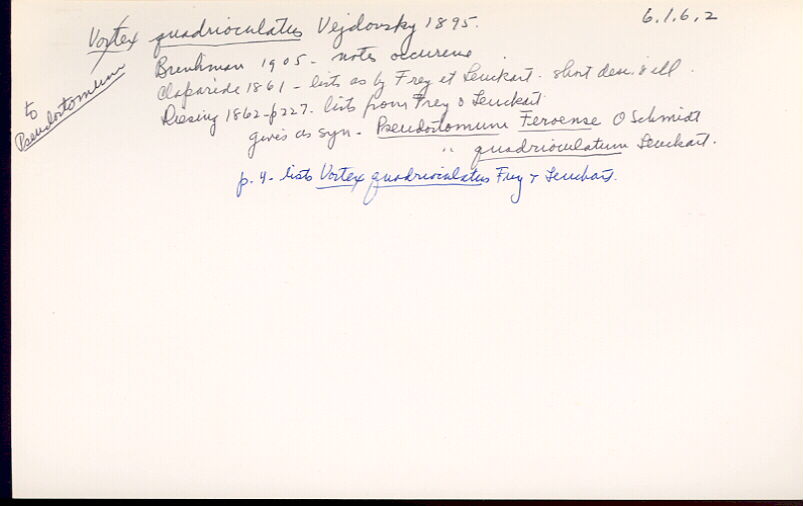 6.1.6.2
Vortex quadrioculatus Vejdovsky 1895.
to Pseudostomum
Brenkman 1905 - notes occurene
Claparède 1861 - lists as by Frey et Leuckart. short desc. & ill.
Diesing 1862 - p227. lists from Frey & Leuckart
gives as syn - Pseudostomum Feroense O Schmidt
" quadrioculatum Leuckart.
p. 4 - lists Vortex quadrioculatus Frey & Leuckart.